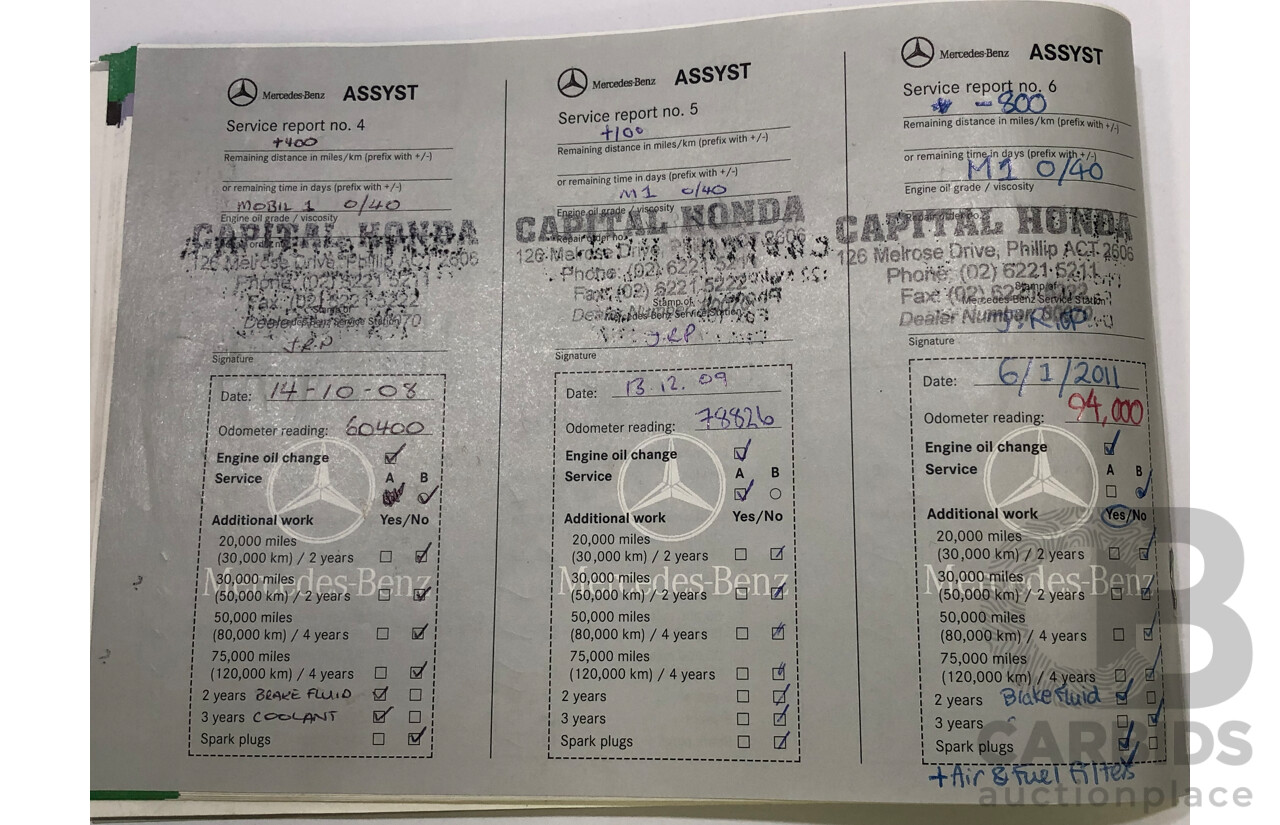 Mercedes-Benz ASSYST
Service report no. 4
+400
Remaining distance in miles/km (prefix with +/-)
or remaining time in days (prefix with +/-)
MOBIL 1 0/40
Engine oil grade / viscosity
CAPITAL HONDA
126 Melrose Drive, Phillip ACT 2606
Phone: (02) 6221 5211
Fax: (02) 6221 5222
Stamp of
Mercedes-Benz Service Station
J.R.P
Signature
Date: 14-10-08
Odometer reading: 60400
Engine oil change
Service A B
Additional work Yes/No
20,000 miles
(30,000 km) / 2 years
30,000 miles
(50,000 km) / 2 years
50,000 miles
(80,000 km) / 4 years
75,000 miles
(120,000 km) / 4 years
2 years BRAKE FLUID
3 years COOLANT
Spark plugs
Mercedes-Benz
Mercedes-Benz ASSYST
Service report no. 5
+100
Remaining distance in miles/km (prefix with +/-)
or remaining time in days (prefix with +/-)
M1 0/40
Engine oil grade / viscosity
CAPITAL HONDA
Repair order no.
126 Melrose Drive, Phillip ACT 2606
Phone: (02) 6221 5211
Fax: (02) 6221 5222
Stamp of
Mercedes-Benz Service Station
J.R.P
Signature
Date: 13.12.09
Odometer reading: 78826
Engine oil change
Service A B
Additional work Yes/No
20,000 miles
(30,000 km) / 2 years
30,000 miles
(50,000 km) / 2 years
50,000 miles
(80,000 km) / 4 years
75,000 miles
(120,000 km) / 4 years
2 years
3 years
Spark plugs
Mercedes-Benz
Mercedes-Benz ASSYST
Service report no. 6
-800
Remaining distance in miles/km (prefix with +/-)
or remaining time in days (prefix with +/-)
M1 0/40
Engine oil grade / viscosity
Repair order no.
CAPITAL HONDA
126 Melrose Drive, Phillip ACT 2606
Phone: (02) 6221 5211
Fax: (02) 6221 5222
Stamp of
Mercedes-Benz Service Station
Dealer Number
Signature
Date: 6/1/2011
Odometer reading: 94,000
Engine oil change
Service A B
Additional work Yes/No
20,000 miles
(30,000 km) / 2 years
30,000 miles
(50,000 km) / 2 years
50,000 miles
(80,000 km) / 4 years
75,000 miles
(120,000 km) / 4 years
2 years Brake Fluid
3 years
Spark plugs
+Air & Fuel Filters
Mercedes-Benz
B
CARBIDS
auctionplace